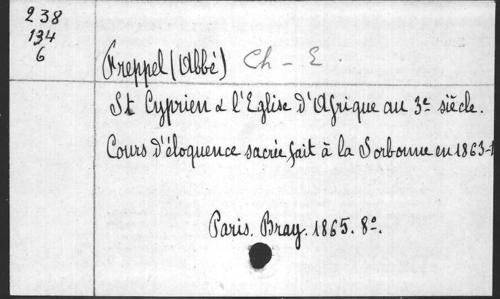 238
134
6
Freppel (Abbé) Ch - E.
St Cyprien & l'Eglise d'Afrique au 3e siècle.
Cours d'éloquence sacrée fait à la Sorbonne en 1863-
Paris. Bray. 1865. 8o.